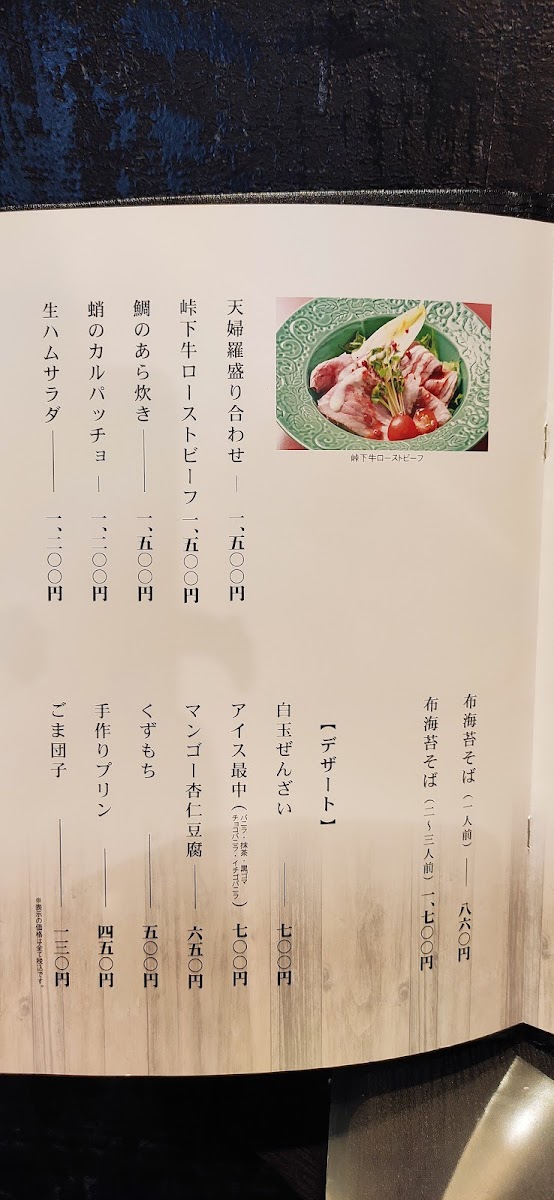 峠下牛ローストビーフ
天婦羅盛り合わせ 一、五〇〇円
峠下牛ローストビーフ 一、五〇〇円
鯛のあら炊き 一、五〇〇円
蛸のカルパッチョ 一、二〇〇円
生ハムサラダ 一、二〇〇円
布海苔そば（一人前） 八六〇円
布海苔そば（二～三人前） 一、七〇〇円
【デザート】
白玉ぜんざい 七〇〇円
アイス最中（バニラ・抹茶・黒ゴマ
チョコバニラ・イチゴバニラ） 七〇〇円
マンゴー杏仁豆腐 六五〇円
くずもち 五〇〇円
手作りプリン 四五〇円
ごま団子 一三〇円
※表示の価格は全て税込です。